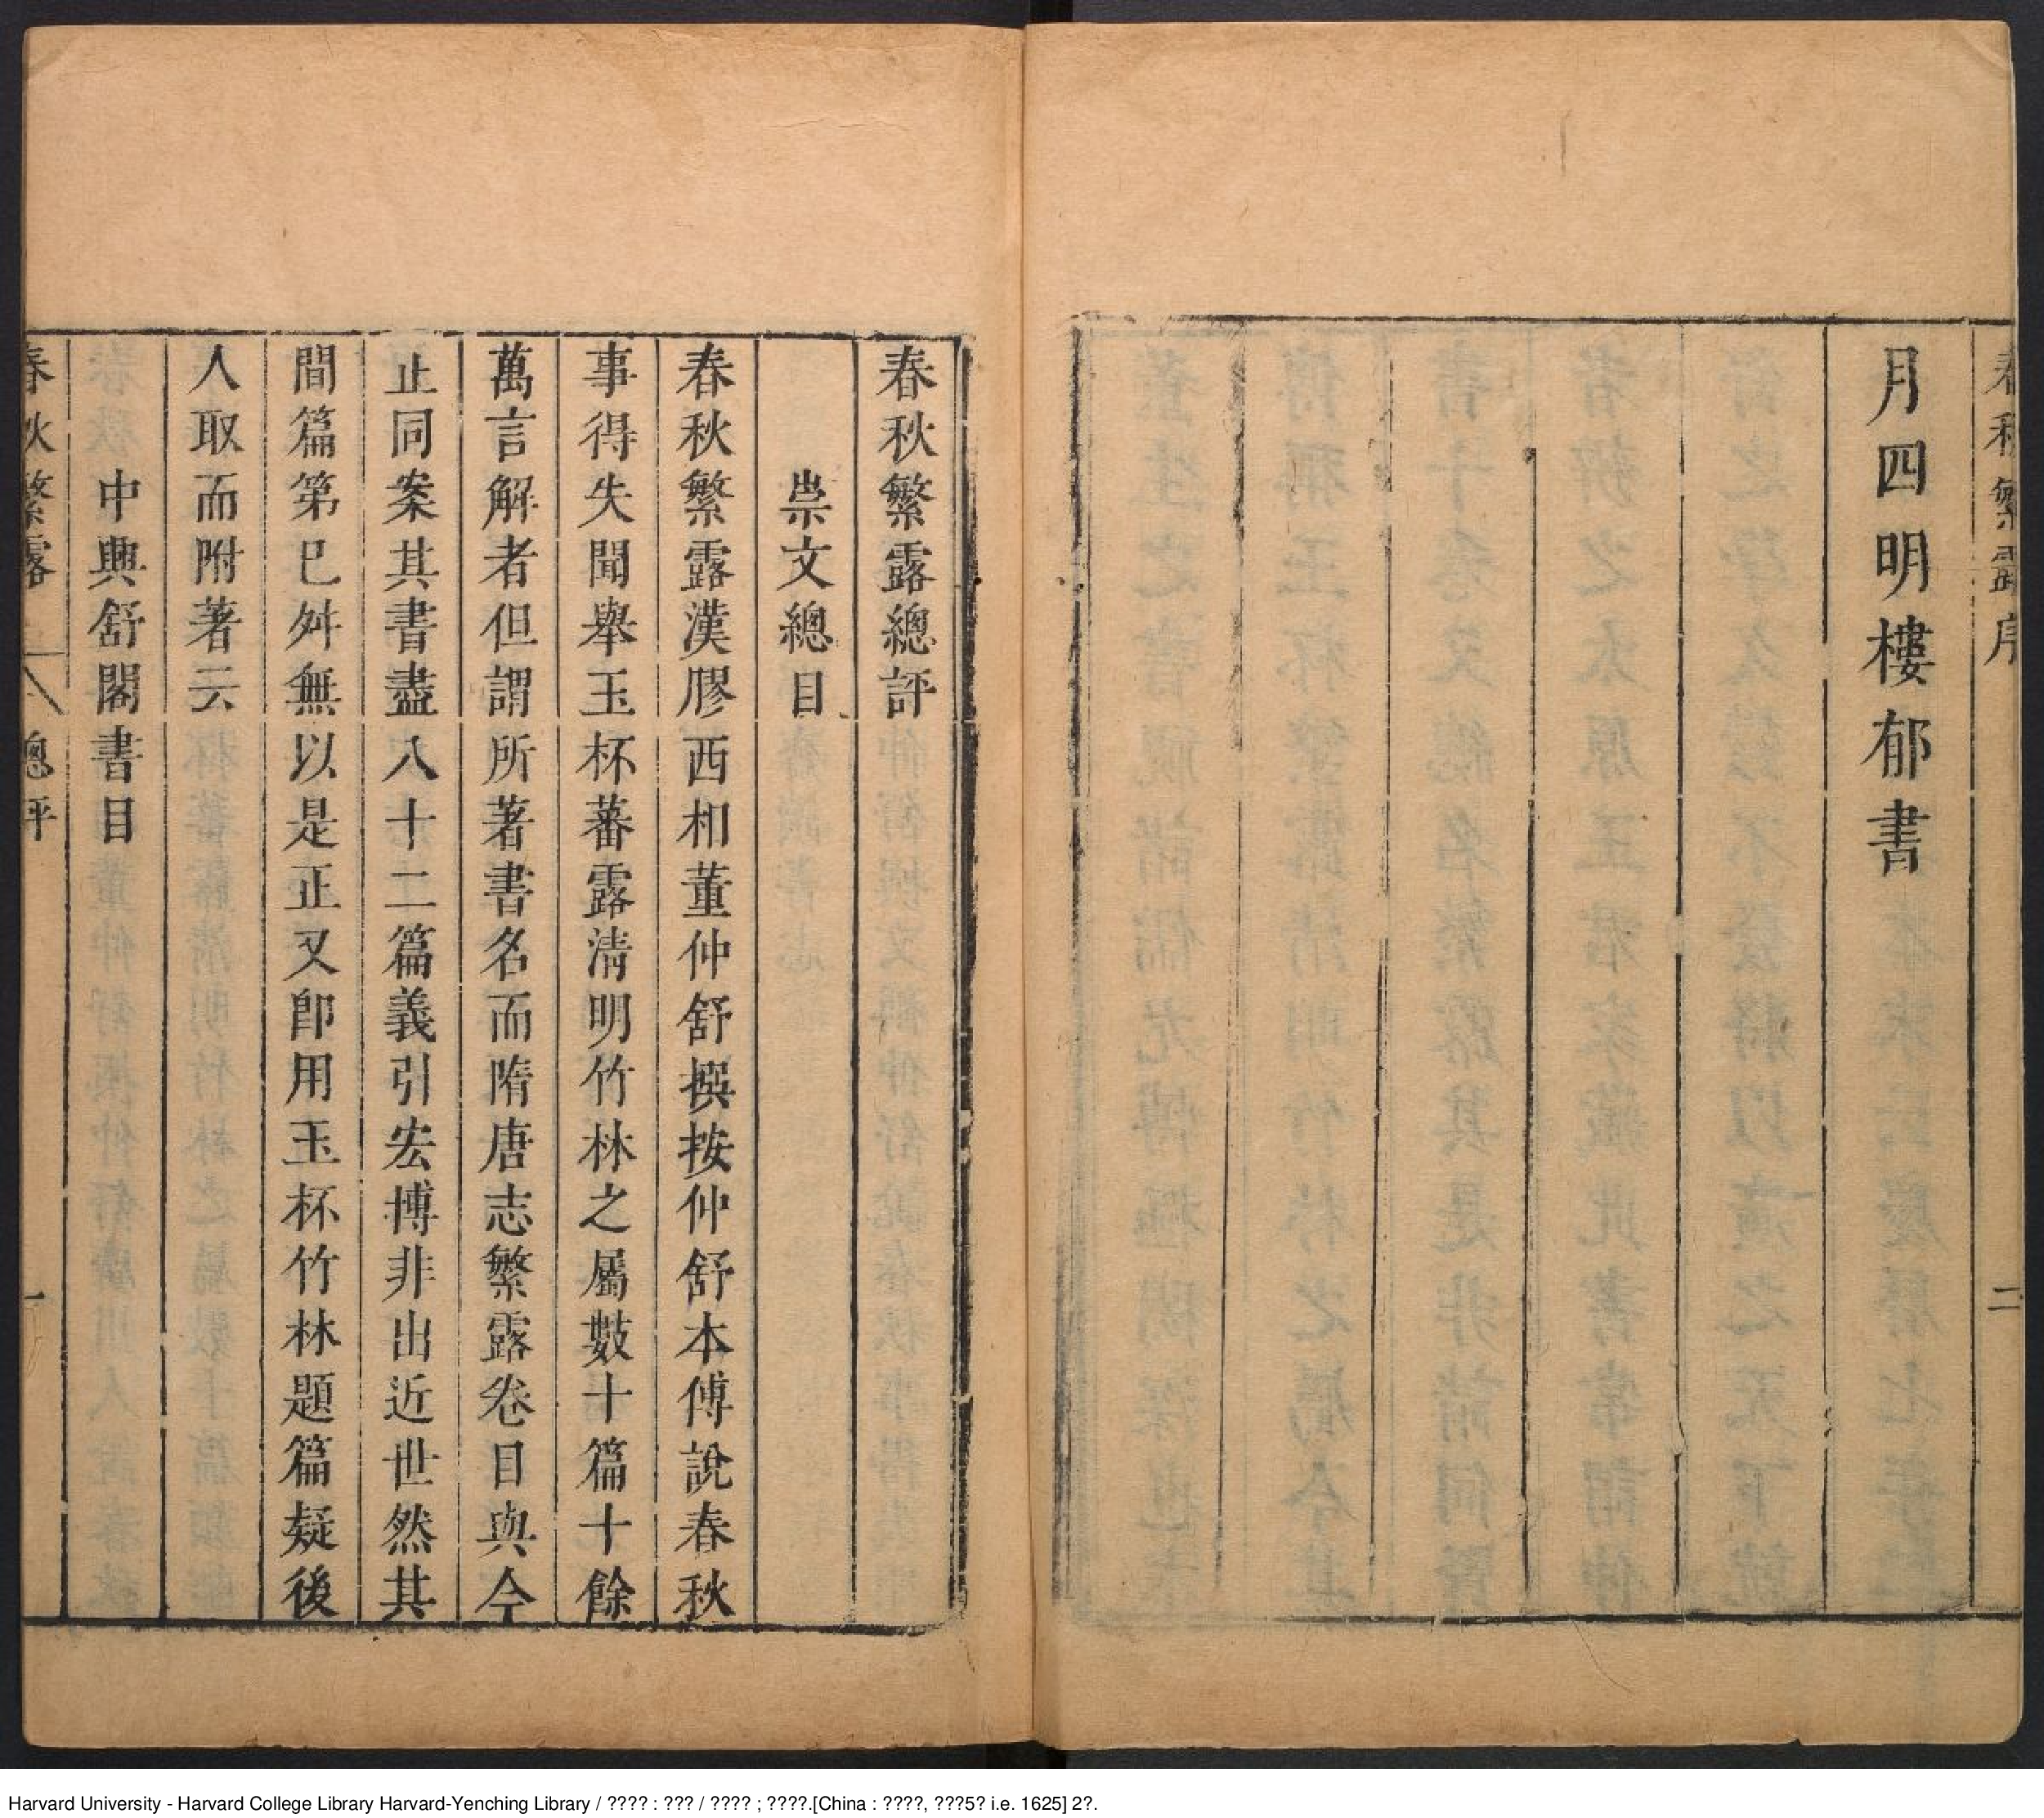 春秋繁露序
二
月四明樓郁書
春秋繁露總評
崇文總目
春秋繁露漢膠西相董仲舒撰按仲舒本傳說春秋
事得失聞舉玉杯蕃露清明竹林之屬數十篇十餘
萬言解者但謂所著書名而隋唐志繁露卷目與今
止同案其書盡八十二篇義引宏博非出近世然其
間篇第已舛無以是正又卽用玉杯竹林題篇疑後
人取而附著云
中興舒閣書目
春秋繁露
總評
一
Harvard University - Harvard College Library Harvard-Yenching Library / ???? : ??? / ???? ; ????.[China : ????, ???5? i.e. 1625] 2?.